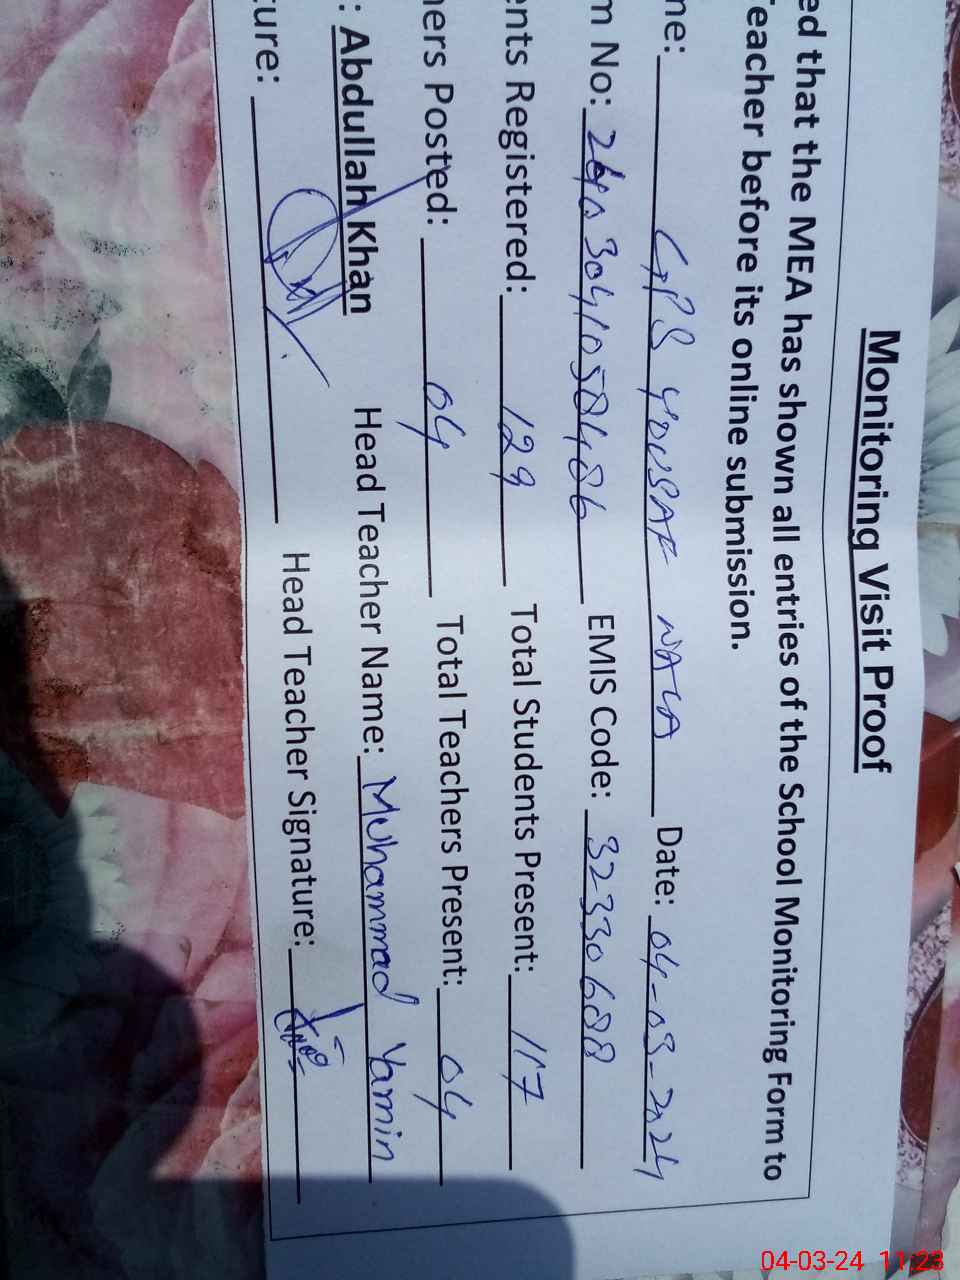 Monitoring Visit Proof
ed that the MEA has shown all entries of the School Monitoring Form to
Teacher before its online submission.
me: GPS YOUSAF WALA Date: 04-03-2024
m No: 240304105848 6 EMIS Code: 32330688
ents Registered: 129 Total Students Present: 117
hers Posted: 04 Total Teachers Present: 04
: Abdullah Khan Head Teacher Name: Muhammad Yamin
ture: Head Teacher Signature:
04-03-24 11:23